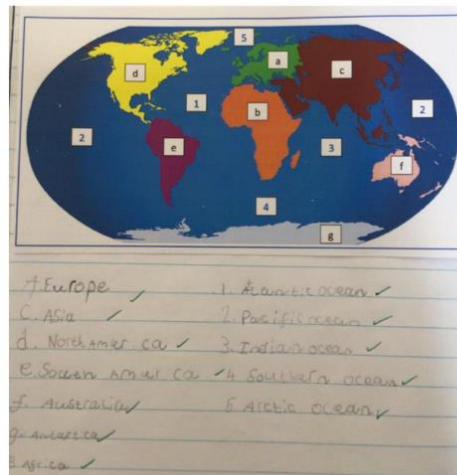 5
d
a
c
1
b
2
2
e
3
f
4
g
A Europe
C. Asia
d. North Amer ca
e. South Amer ca
f. Australia
g. Antartica
B Africa
1. Atlantic ocean
2. Pacific ocean
3. Indian ocean
4 Southern ocean
5 Arctic ocean